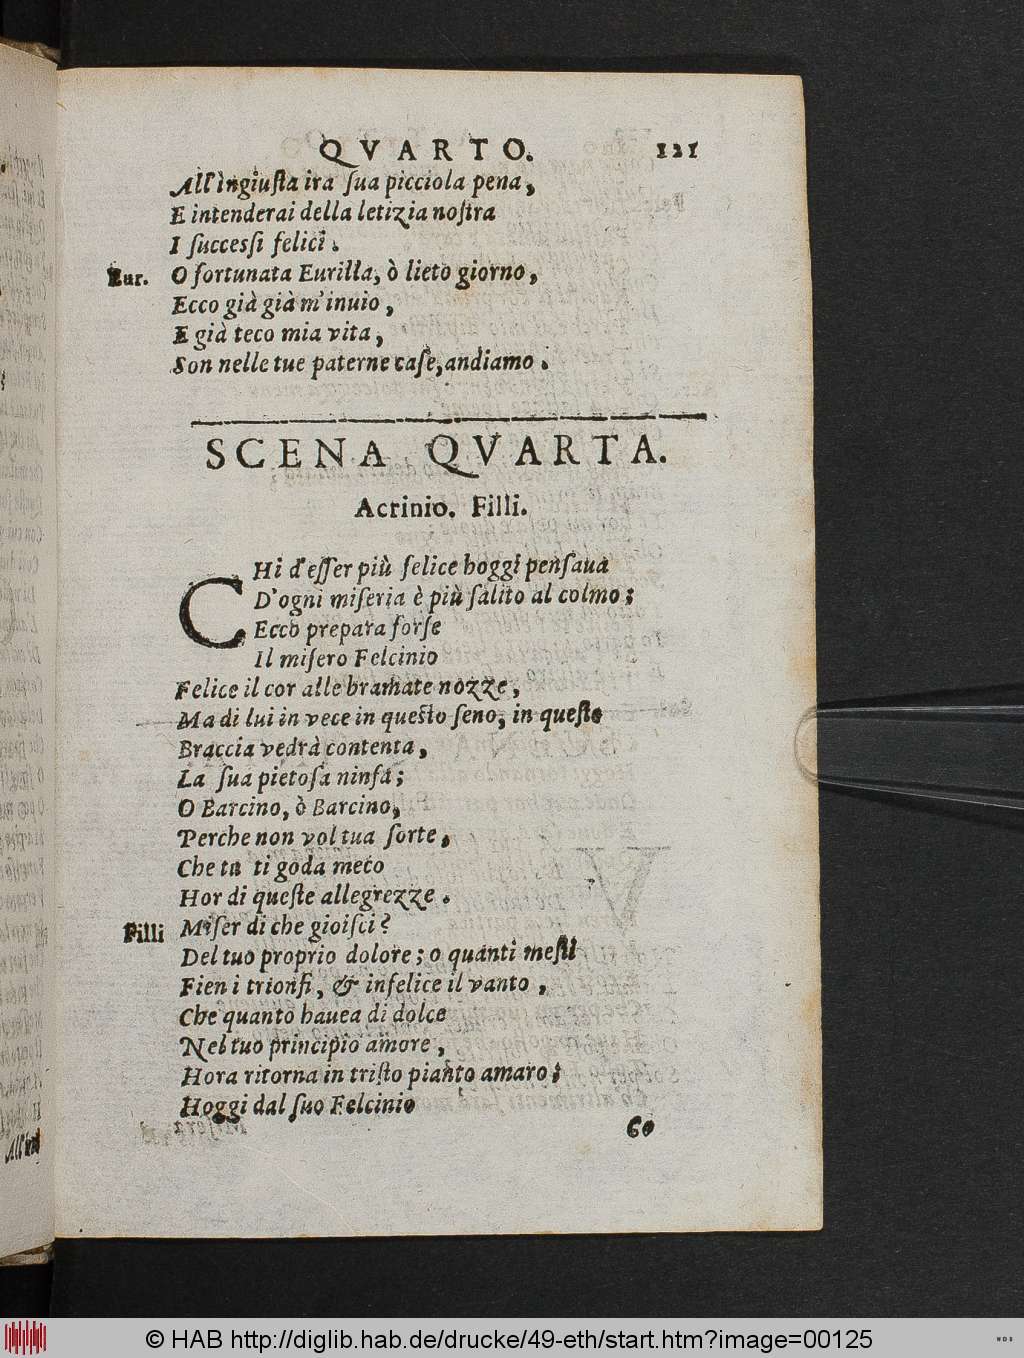 QVARTO. 121
All'ingiusta ira sua picciola pena,
E intenderai della letizia nostra
I successi felici.
Eur. O fortunata Eurilla, ò lieto giorno,
Ecco già già m'inuio,
E già teco mia vita,
Son nelle tue paterne case, andiamo.
SCENA QVARTA.
Actinio. Filli.
CHi d'esser più felice hoggi pensaua
D'ogni miseria è più salito al colmo;
Ecco prepara forse
Il misero Felcinio
Felice il cor alle bramate nozze,
Ma di lui in vece in questo seno, in queste
Braccia vedrà contenta,
La sua pietosa ninfa;
O Barcino, ò Barcino,
Perche non vol tua sorte,
Che tu ti goda meco
Hor di queste allegrezze.
Filli Miser di che gioisci?
Del tuo proprio dolore; o quanti mesti
Fien i trionfi, & infelice il vanto,
Che quanto hauea di dolce
Nel tuo principio amore,
Hora ritorna in tristo pianto amaro;
Hoggi dal suo Felcinio
Co
All'in
© HAB http://diglib.hab.de/drucke/49-eth/start.htm?image=00125